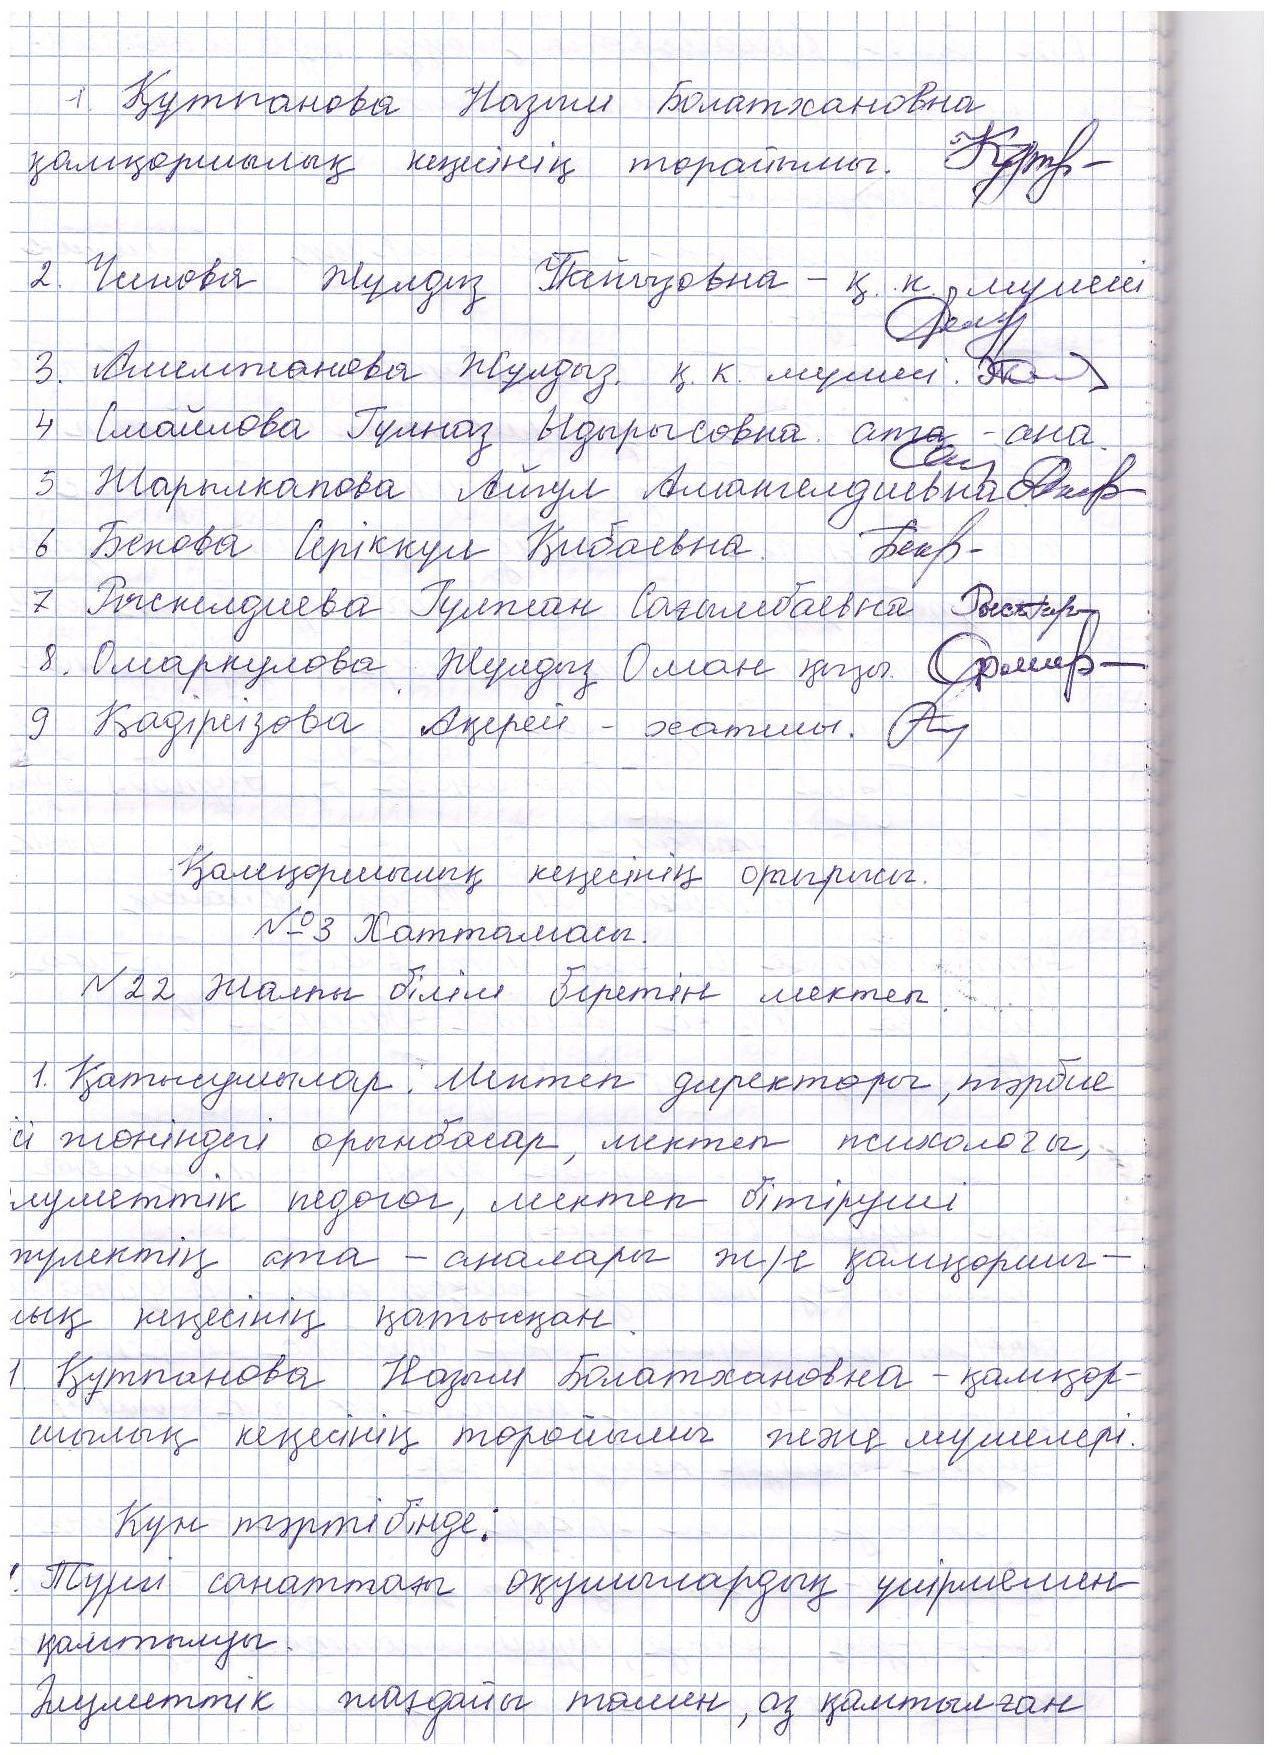 1. Құтпанова Назым Болатхановна
қамқоршылық кеңесінің төрайымы.
2. Чинова Жұлдыз Пайызовна – қ. к. мүшесі
3. Алимжанова Жұлдыз. қ. к. мүшесі.
4 Смайлова Гүлназ Ыдырысовна ата-ана.
5 Жарылкапова Айгүл Амангелдиевна
6 Бекова Серіккүл Қибаевна.
7 Рыскелдиева Гүлжан Сағымбаевна
8. Омаркулова Жұлдыз Оман қызы.
9 Кадірсізова Ақерей – хатшы.
Қамқоршылық кеңесінің отырысы.
№3 Хаттамасы.
N22 Жалпы білім беретін мектеп.
1. Қатысушылар: Мектеп директоры, тәрбие
ісі жөніндегі орынбасар, мектеп психологы,
луметтік педогог, мектеп бітіруші
түлектің ата – аналары ж/е қамқоршы–
лық кеңесінің қатысқан.
1. Құтпанова Назым Болатхановна – қамқор-
шылық кеңесінің төройымы және мүшелері.
Күн тәртібінде:
Түрлі санаттағы оқушылардың үйірмемен
қамтылуы.
Әлуметтік жағдайы төмен, аз қамтылған